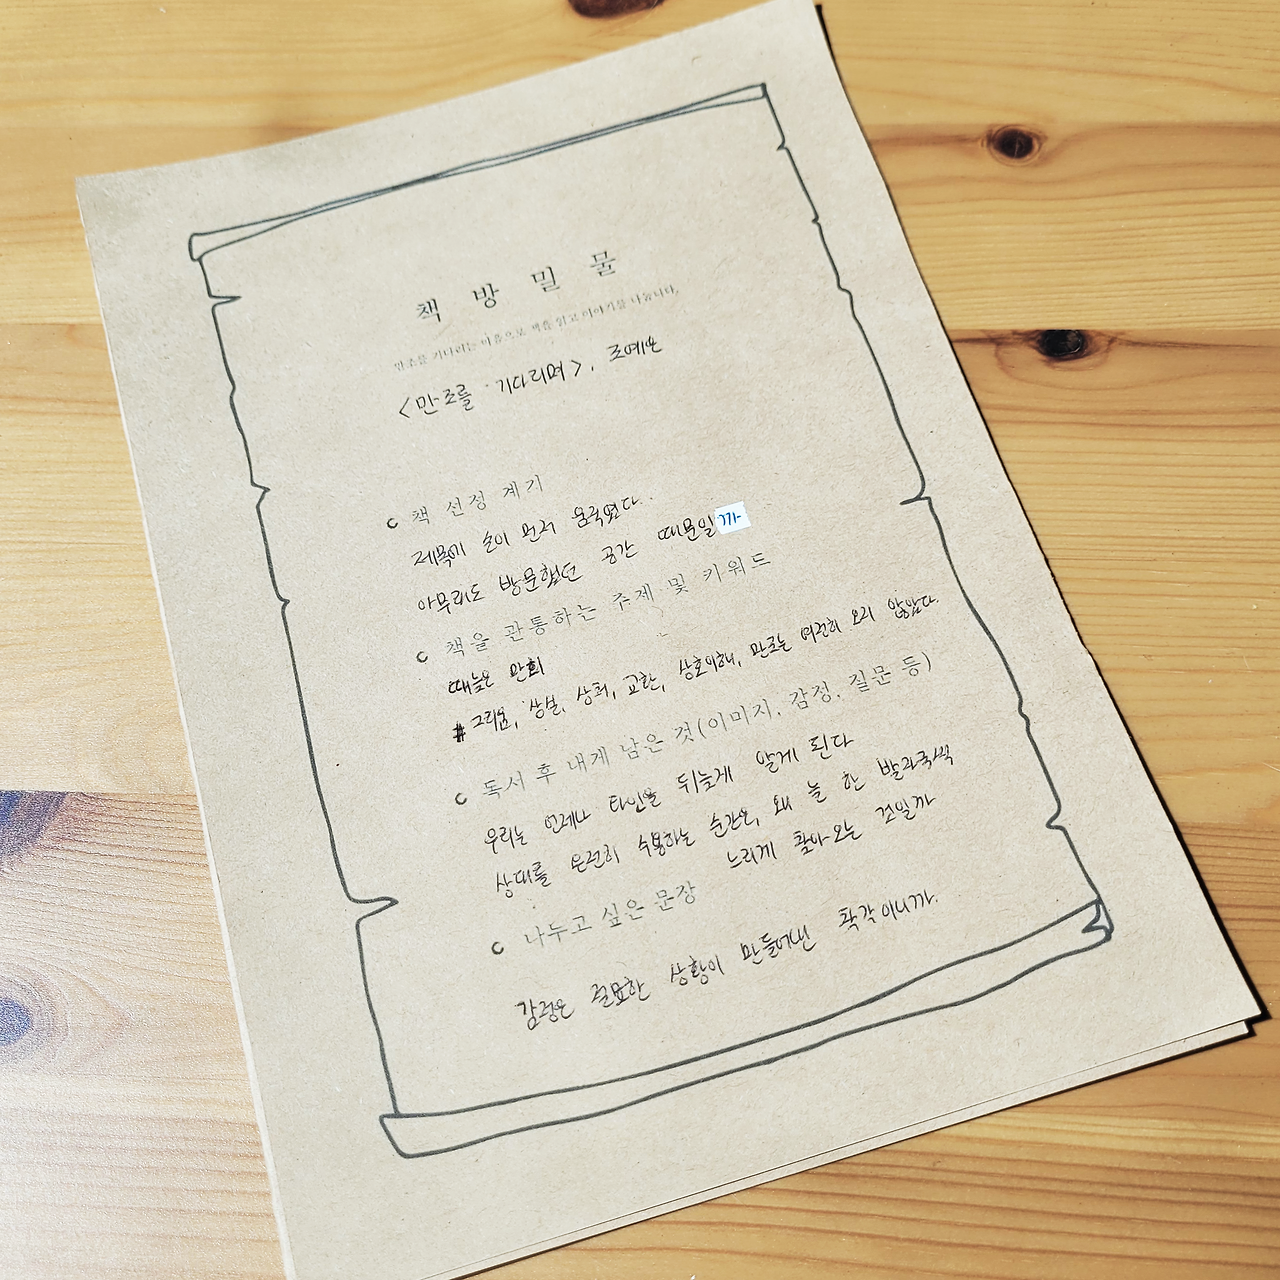 책 방 밀 물
만조를 기다리는 마음으로 책을 읽고 이야기를 나눕니다.
<만조를 기다리며>, 조예은
책 선정 계기
제목에 손이 먼저 움직였다..
아무래도 방문했던 공간 때문일까
책을 관통하는 주제 및 키워드
때늦은 만회
# 그리움, 상실, 상처, 교환, 상호이해, 만조는 여전히 오지 않았다.
독서 후 내게 남은 것(이미지, 감정, 질문 등)
우리는 언제나 타인을 뒤늦게 알게 된다
상대를 온전히 수용하는 순간은, 왜 늘 한 발자국씩
느리게 찾아오는 것일까
나누고 싶은 문장
감정은 필요한 상황이 만들어낸 착각이니까.